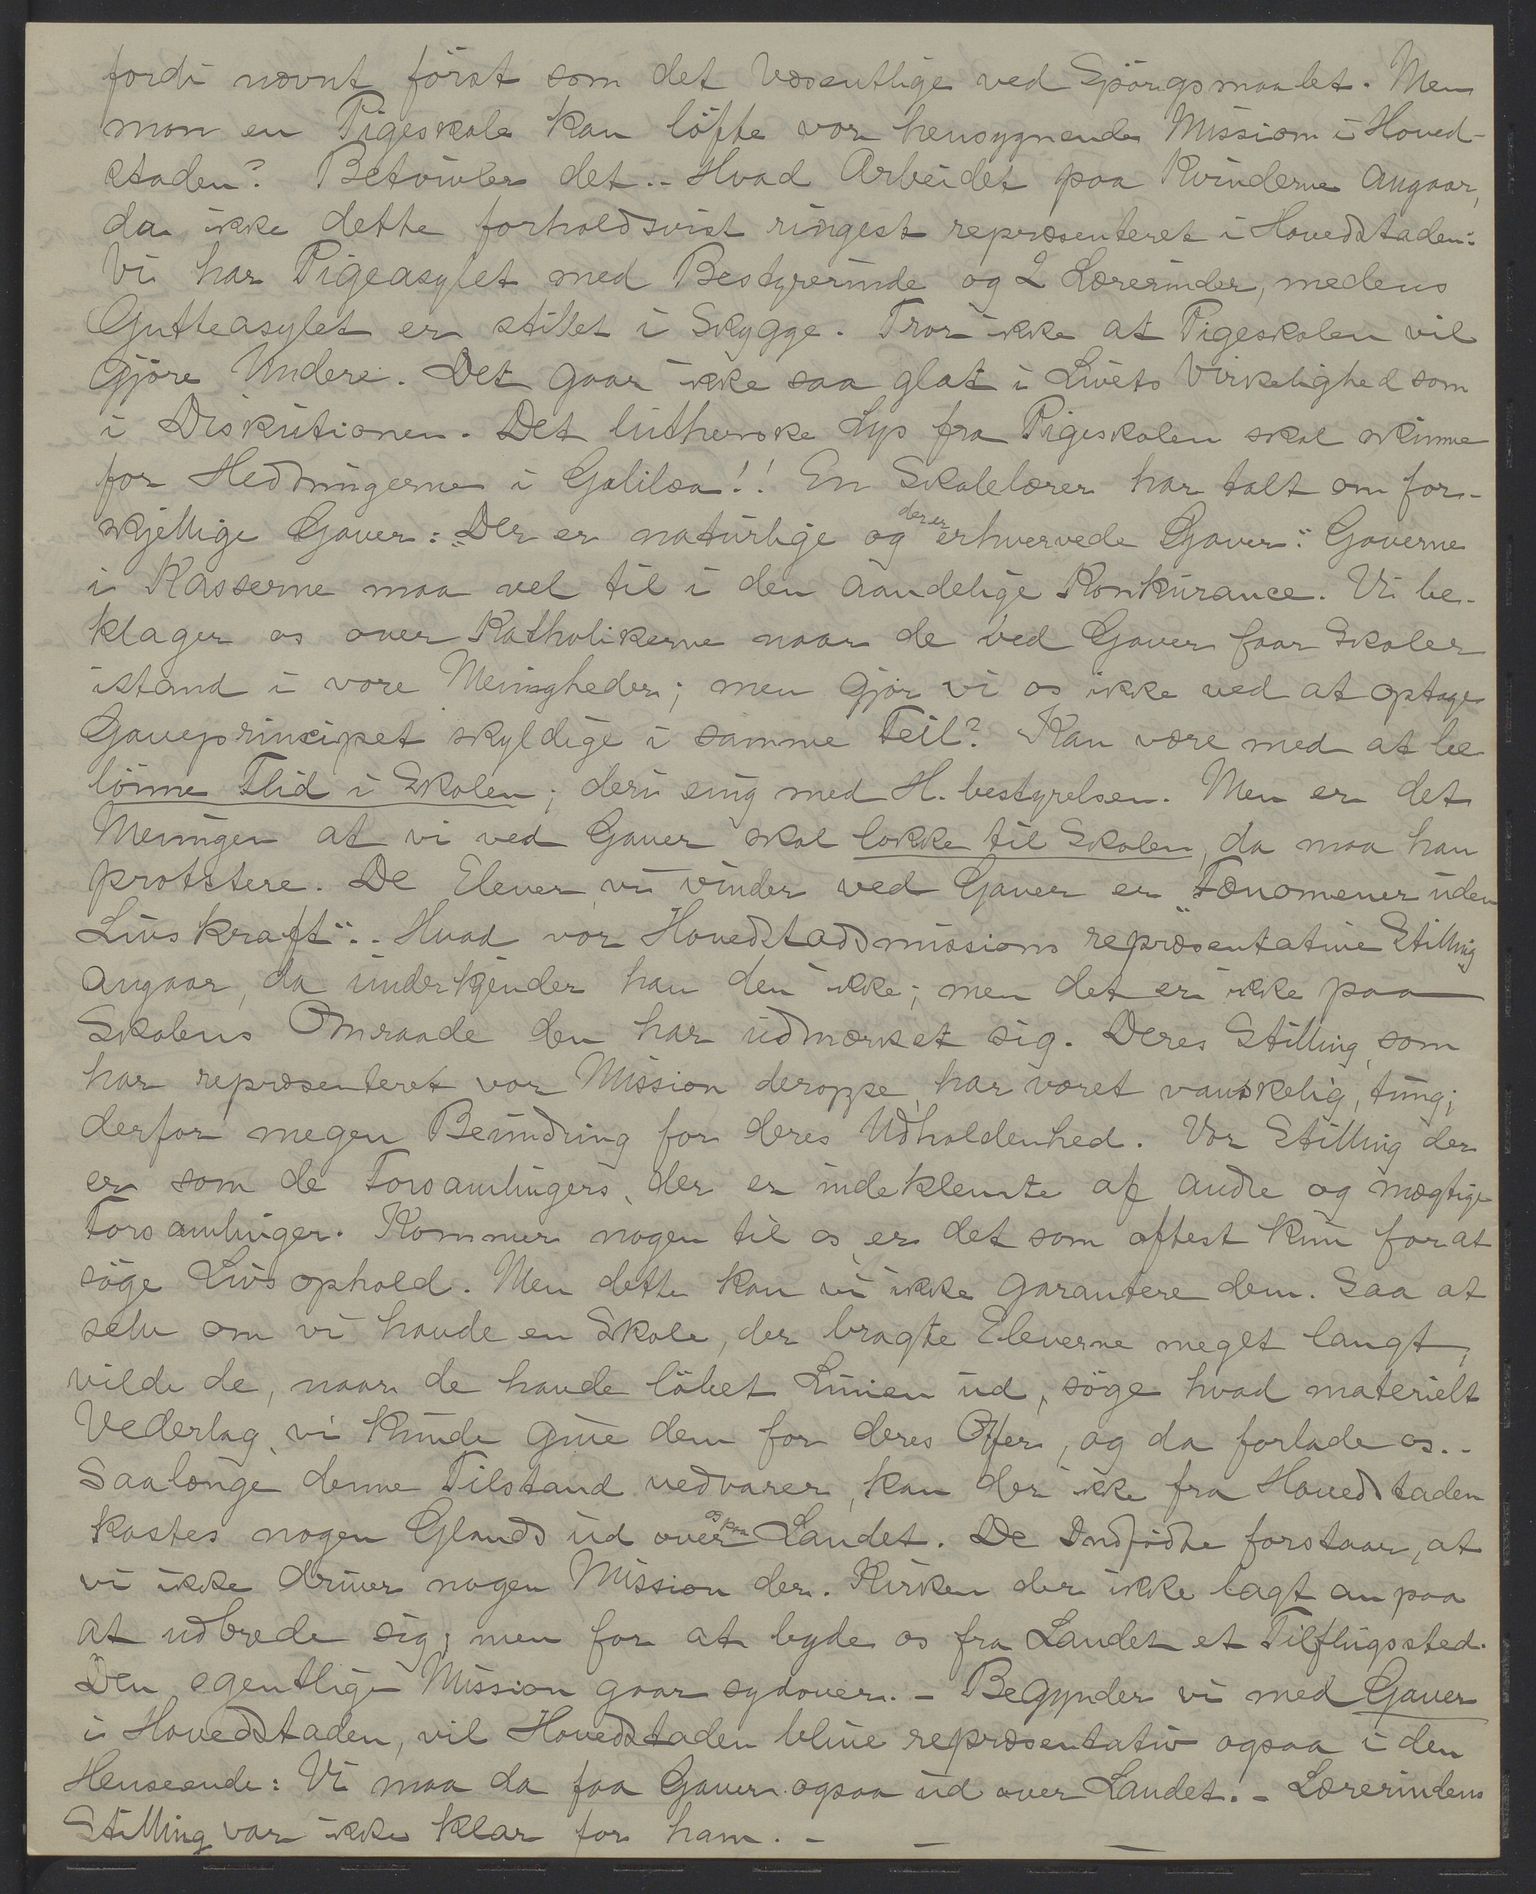 fordi nævnt först som det Væsentlige ved Spörgsmaalet. Men
mon en Pigeskole kan löfte vor hensygnende Mission i Hoved-
staden? Betvivler det.- Hvad Arbeidet paa Kvinderne angaar,
da ikke dette forholdsvist ringest repræsenteret i Hovedstaden:
Vi har Pigeasylet med Bestyrerinde og 2 Lærerinder, medens
Gutteasylet er stillet i Skygge. Tror ikke at Pigeskolen vil
gjöre Undere. Det gaar ikke saa glat i Livets Virkelighed som
i Diskutionen. Det lutherske Lys fra Pigeskolen skal skinne
for Hedningerne i Galilæa!! En Skolelærer har talt om for-
skjellige Gaver: "Der er naturlige og der er erhvervede Gaver": Gaverne
i Kasserne maa vel til i den aandelige Konkurance. Vi be-
klager os over Katholikerne naar de ved Gaver faar Skoler
istand i vore Menigheder; men gjör vi os ikke ved at optage
Gaveprincipet skyldige i samme Feil? Kan være med at be
lönne Flid i Skolen; deri enig med H. bestyrelsen. Men er det
Meningen at vi ved Gaver skal lokke til Skolen, da maa han
protstere. De Elever vi vinder ved Gaver er "Fænomener uden
Livskraft".- Hvad vor Hovedstadsmissions repræsentative Stilling
angaar, da underkjender han den ikke; men det er ikke paa
Skolens Omraade den har udmærket sig. Deres Stilling, som
har repræsenteret vor Mission deroppe, har været vanskelig, tung;
derfor megen Beundring for deres Udholdenhed. Vor Stilling der
er som de Forsamlingers, der er indeklemte af andre og mægtige
Forsamlinger. Kommer nogen til os er det som oftest kun for at
söge Livsophold. Men dette kan vi ikke garantere dem. Saa at
selv om vi havde en Skole, der bragte Eleverne meget langt,
vilde de, naar de havde löbet Linien ud, söge hvad materielt
Vederlag, vi kunde give dem for deres Offer, og da forlade os.-
Saalænge denne Tilstand vedvarer, kan der ikke fra Hovedstaden
kastes nogen Glands ud over os paa Landet. De Indfödte forstaar, at
vi ikke driver nogen Mission der. Kirken der ikke lagt an paa
at udbrede sig; men for at byde os fra Landet et Tilflugssted.
Den egentlige Mission gaar sydover. - Begynder vi med Gaver
i Hovedstaden, vil Hovedstaden blive repræsentativ ogsaa i den
Henseende: Vi maa da faa Gaver ogsaa ud over Landet. - Lærerindens
Stilling var ikke klar for ham. - — —